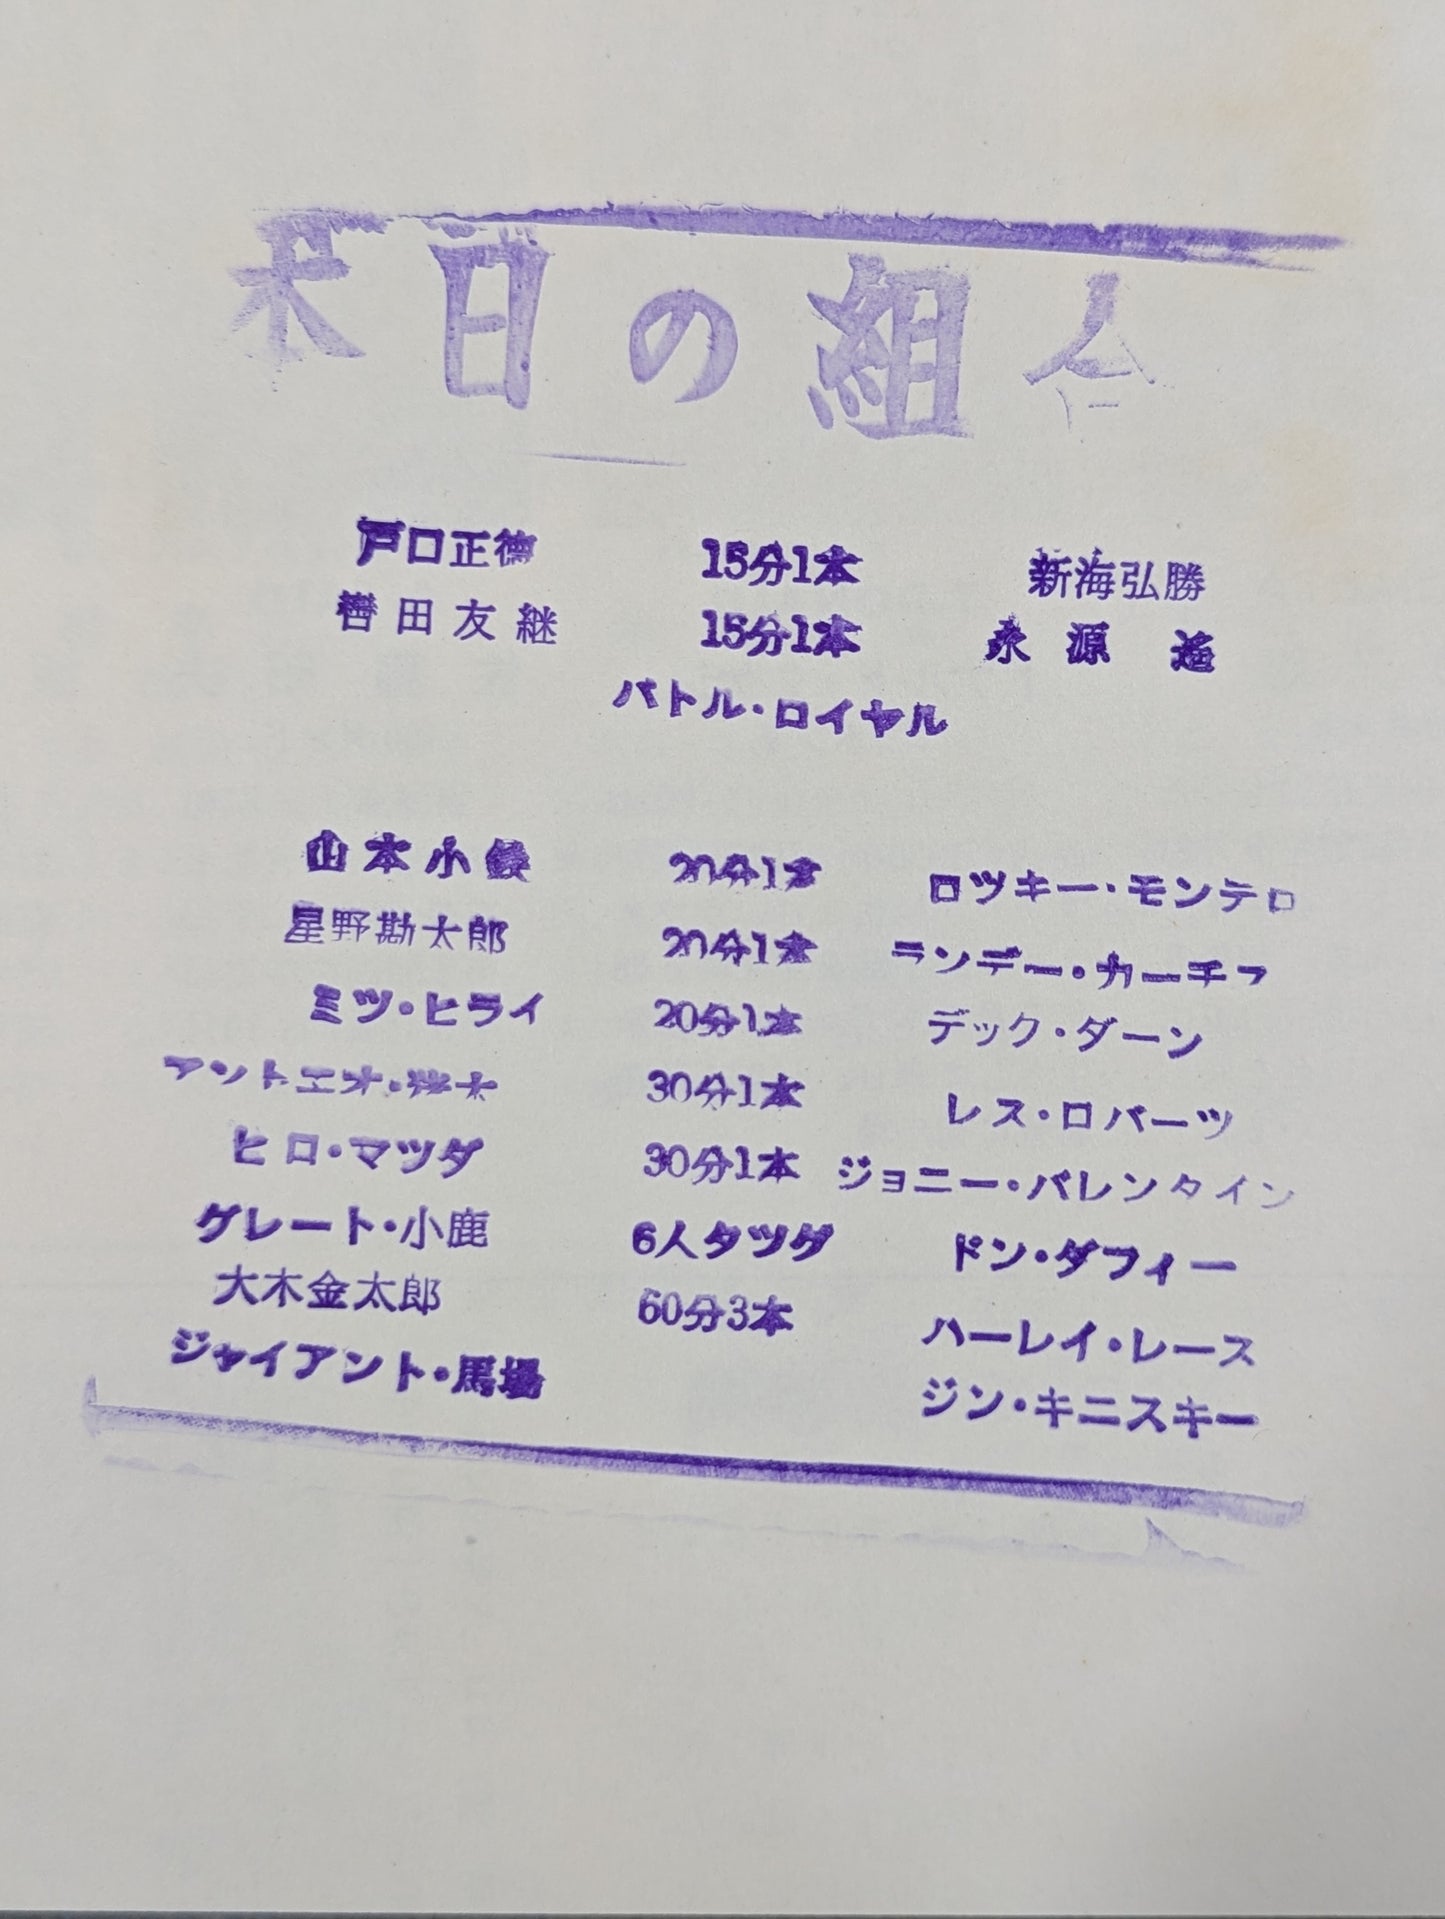 本日の組合
戸口正徳 15分1本 新海弘勝
轡田友継 15分1本 永源 遙
バトル・ロイヤル
山本小鉄 20分1本 ロツキー・モンテロ
星野勘太郎 20分1本 ランデー・カーチス
ミツ・ヒライ 20分1本 デック・ダーン
アントニオ・猪木 30分1本 レス・ロバーツ
ヒロ・マツダ 30分1本 ジョニー・バレンタイン
グレート・小鹿 6人タツグ ドン・ダフィー
大木金太郎 60分3本 ハーレイ・レース
ジャイアント・馬場 ジン・キニスキー